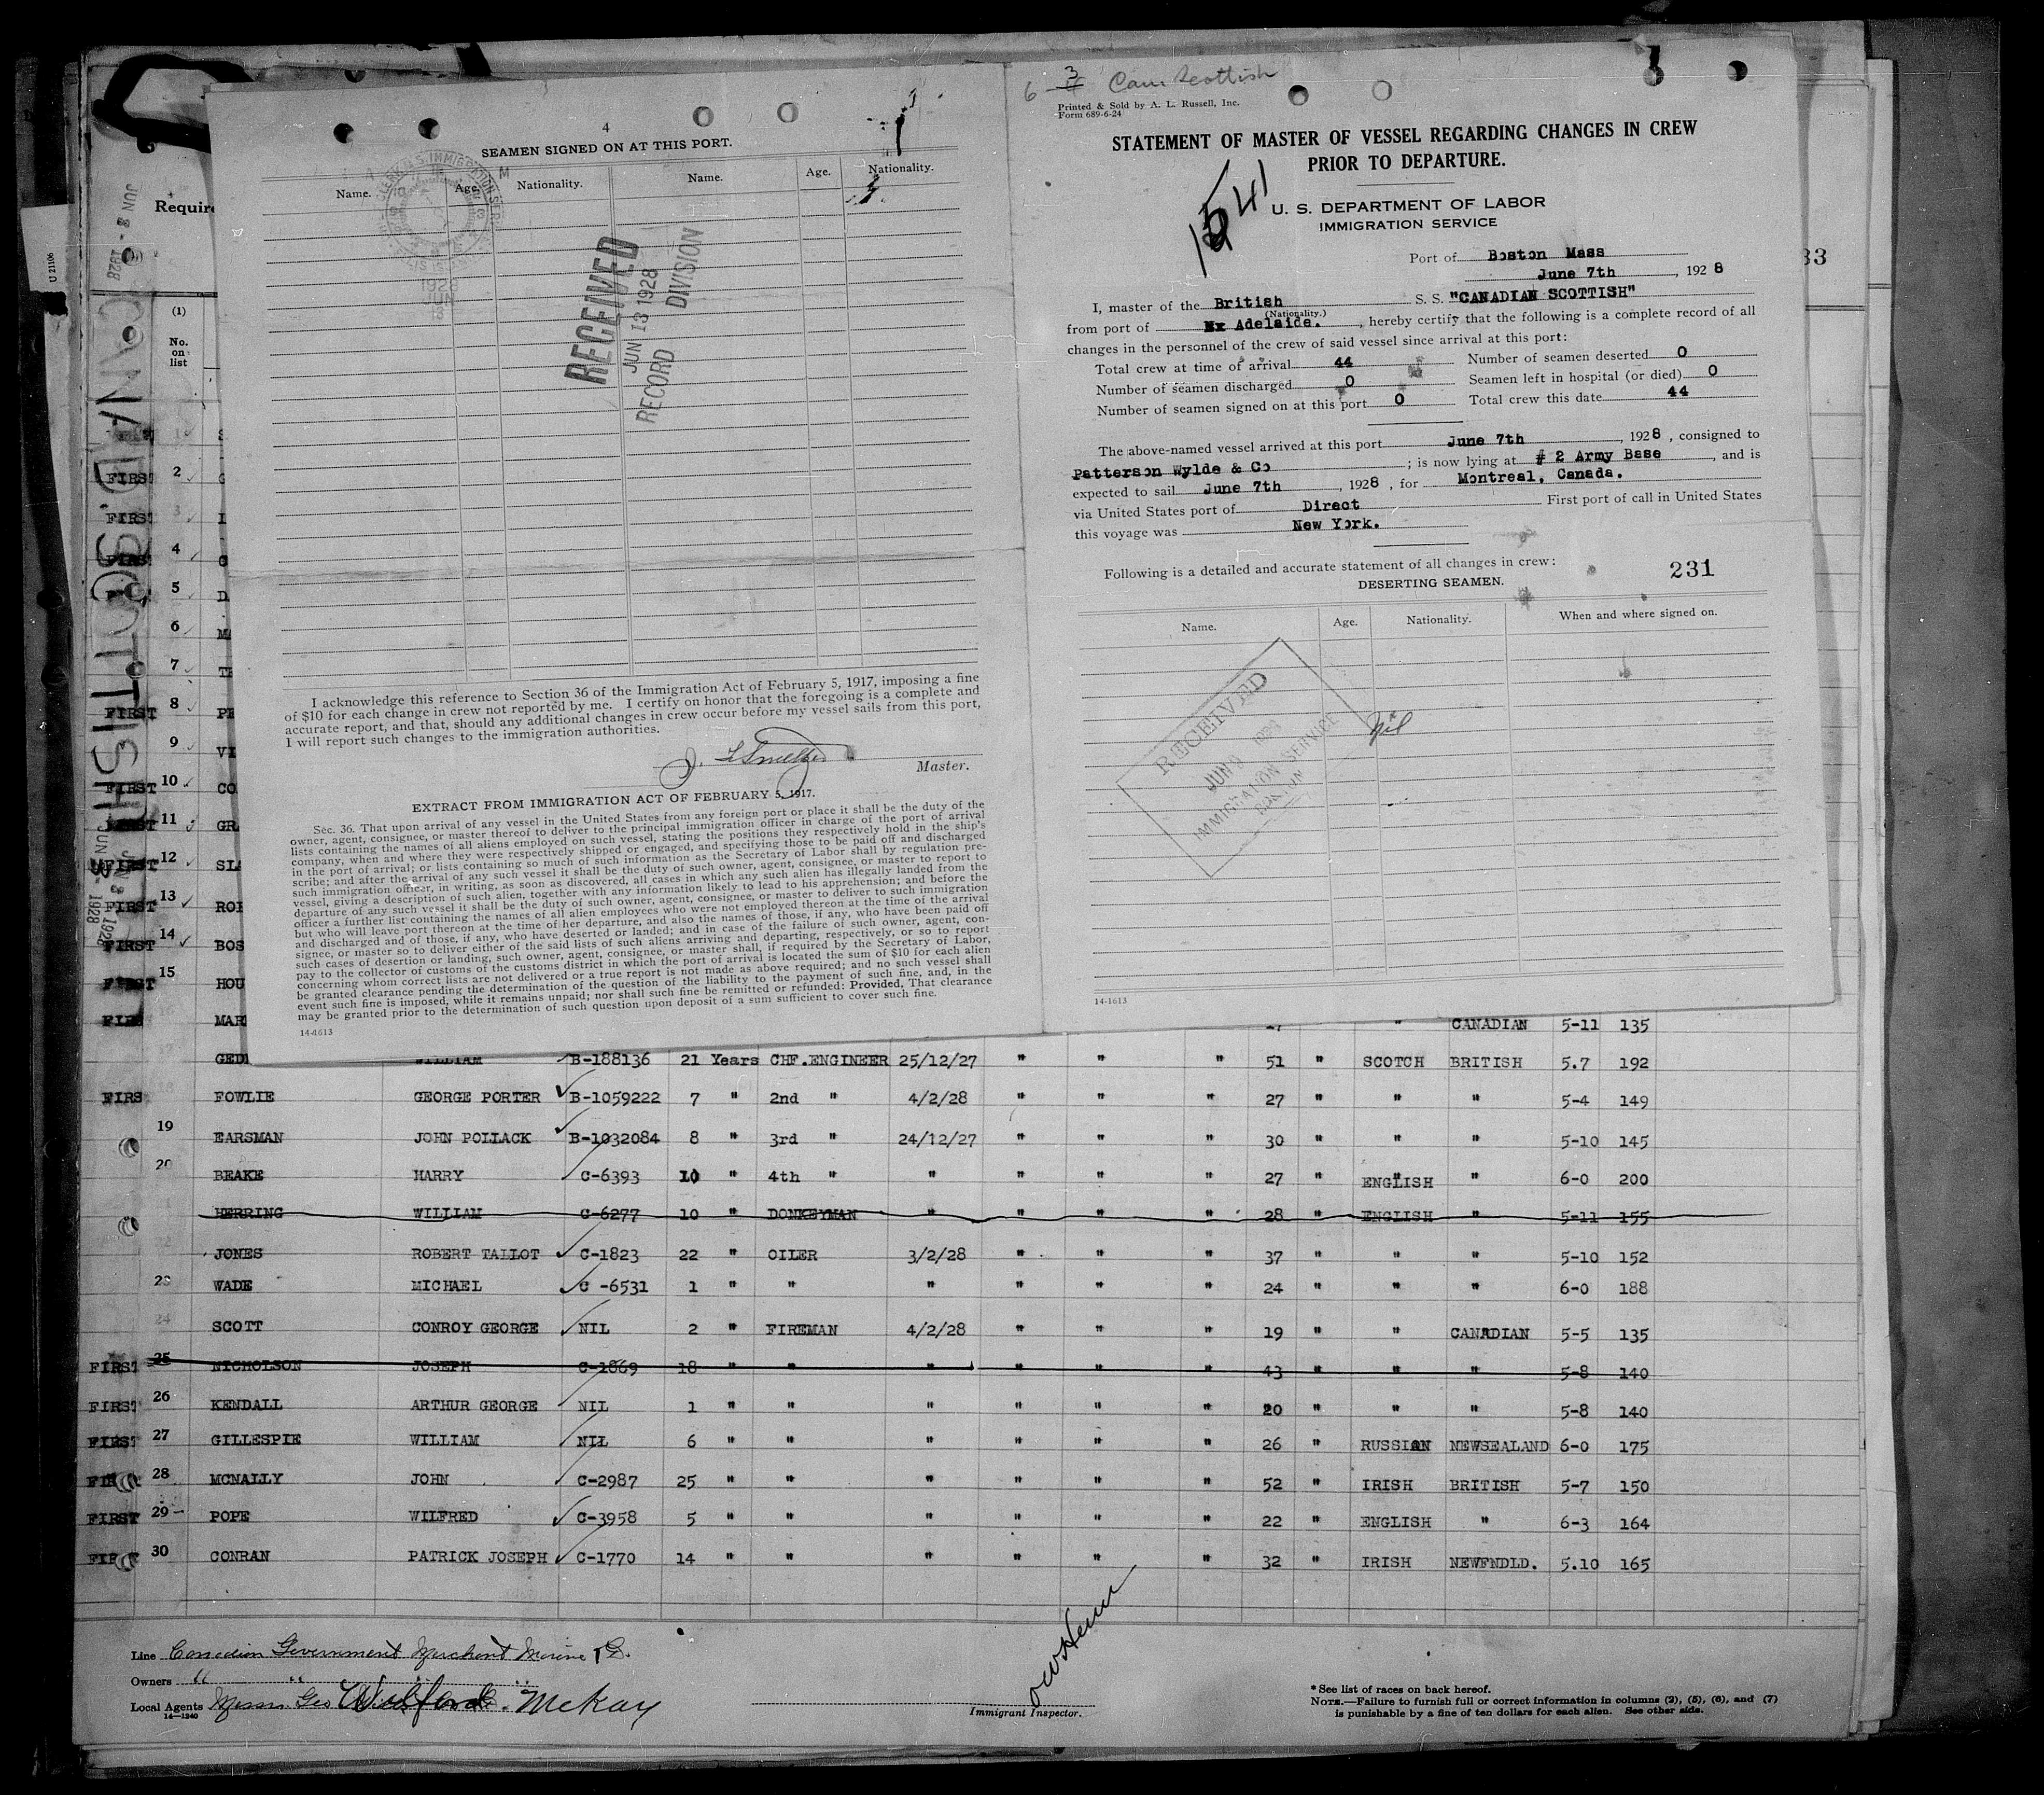 4
SEAMEN SIGNED ON AT THIS PORT.
Name. Age. Nationality. Name. Age. Nationality.
RECEIVED
JUN 13 1928
RECORD DIVISION
1928
JUN
13
I acknowledge this reference to Section 36 of the Immigration Act of February 5, 1917, imposing a fine
of $10 for each change in crew not reported by me. I certify on honor that the foregoing is a complete and
accurate report, and that, should any additional changes in crew occur before my vessel sails from this port,
I will report such changes to the immigration authorities.
Master.
EXTRACT FROM IMMIGRATION ACT OF FEBRUARY 5, 1917.
Sec. 36. That upon arrival of any vessel in the United States from any foreign port or place it shall be the duty of the
owner, agent, consignee, or master thereof to deliver to the principal immigration officer in charge of the port of arrival
lists containing the names of all aliens employed on such vessel, stating the positions they respectively hold in the ship's
company, when and where they were respectively shipped or engaged, and specifying those to be paid off and discharged
in the port of arrival; or lists containing so much of such information as the Secretary of Labor shall by regulation pre-
scribe; and after the arrival of any such vessel it shall be the duty of such owner, agent, consignee, or master to report to
such immigration officer, in writing, as soon as discovered, all cases in which any such alien has illegally landed from the
vessel, giving a description of such alien, together with any information likely to lead to his apprehension; and before the
departure of any such vessel it shall be the duty of such owner, agent, consignee, or master to deliver to such immigration
officer a further list containing the names of all alien employees who were not employed thereon at the time of the arrival
but who will leave port thereon at the time of her departure, and also the names of those, if any, who have been paid off
and discharged and of those, if any, who have deserted or landed; and in case of the failure of such owner, agent, con-
signee, or master so to deliver either of the said lists of such aliens arriving and departing, respectively, or so to report
such cases of desertion or landing, such owner, agent, consignee, or master shall, if required by the Secretary of Labor,
pay to the collector of customs of the customs district in which the port of arrival is located the sum of $10 for each alien
concerning whom correct lists are not delivered or a true report is not made as above required; and no such vessel shall
be granted clearance pending the determination of the question of the liability to the payment of such fine, and, in the
event such fine is imposed, while it remains unpaid; nor shall such fine be remitted or refunded: Provided, That clearance
may be granted prior to the determination of such question upon deposit of a sum sufficient to cover such fine.
14-1613
6 3 Cam Scottish
Printed & Sold by A. L. Russell, Inc.
Form 689-6-24
STATEMENT OF MASTER OF VESSEL REGARDING CHANGES IN CREW
PRIOR TO DEPARTURE.
U. S. DEPARTMENT OF LABOR
IMMIGRATION SERVICE
Port of Boston Mass
June 7th, 1928
I, master of the British S. S. "CANADIAN SCOTTISH"
(Nationality.)
from port of Adelaide., hereby certify that the following is a complete record of all
changes in the personnel of the crew of said vessel since arrival at this port:
Total crew at time of arrival 44 Number of seamen deserted 0
Number of seamen discharged 0 Seamen left in hospital (or died) 0
Number of seamen signed on at this port 0 Total crew this date 44
The above-named vessel arrived at this port June 7th, 1928, consigned to
Patterson Wylde & Co; is now lying at # 2 Army Base, and is
expected to sail June 7th, 1928, for Montreal, Canada.
via United States port of Direct First port of call in United States
this voyage was New York.
Following is a detailed and accurate statement of all changes in crew:
231
DESERTING SEAMEN.
Name. Age. Nationality. When and where signed on.
Nil
RECEIVED
JUN 9
IMMIGRATION SERVICE
14-1613
33
U 21106
JUN 8 - 1928
CANAD. SCOTTISH
Require
(1)
No.
on
list
FIRST 2
FIRST 3
4
5
6
7
FIRST 8 PE
9 VI
FIRST 10 CO
FIRST 11 GR
FIRST 12 SLA
FIRST 13 ROB
FIRST 14 BOS
FIRST 15 HOU
MAR CANADIAN 5-11 135
GED WILLIAM B-188136 21 Years CHF.ENGINEER 25/12/27 " " " 51 " SCOTCH BRITISH 5.7 192
FIRS FOWLIE GEORGE PORTER B-1059222 7 " 2nd " 4/2/28 " " " 27 " " " 5-4 149
19 EARSMAN JOHN POLLACK B-1032084 8 " 3rd " 24/12/27 " " " 30 " " " 5-10 145
20 BEAKE HARRY C-6393 10 " 4th " " " " " 27 " ENGLISH " 6-0 200
HERRING WILLIAM C-6277 10 " DONKEYMAN " " " " 28 " ENGLISH " 5-11 155
JONES ROBERT TALLOT C-1823 22 " OILER 3/2/28 " " " 37 " " " 5-10 152
23 WADE MICHAEL C -6531 1 " " " " " " 24 " " " 6-0 188
24 SCOTT CONROY GEORGE NIL 2 " FIREMAN 4/2/28 " " " 19 " " CANADIAN 5-5 135
FIRST 25 NICHOLSON JOSEPH C-1869 18 " " " " " " 43 " " " 5-8 140
FIRST 26 KENDALL ARTHUR GEORGE NIL 1 " " " " " " 20 " " " 5-8 140
FIRST 27 GILLESPIE WILLIAM NIL 6 " " " " " " 26 " RUSSIAN NEWSEALAND 6-0 175
28 MCNALLY JOHN C-2987 25 " " " " " " 52 " IRISH BRITISH 5-7 150
FIRST 29 POPE WILFRED C-3958 5 " " " " " " 22 " ENGLISH " 6-3 164
30 CONRAN PATRICK JOSEPH C-1770 14 " " " " " " 32 " IRISH NEWFNDLD. 5.10 165
Line Canadian Government Merchant Marine
Owners " "
Local Agents Messrs Geo McKay
14-1240
Immigrant Inspector.
* See list of races on back hereof.
NOTE.—Failure to furnish full or correct information in columns (2), (5), (6), and (7)
is punishable by a fine of ten dollars for each alien. See other side.